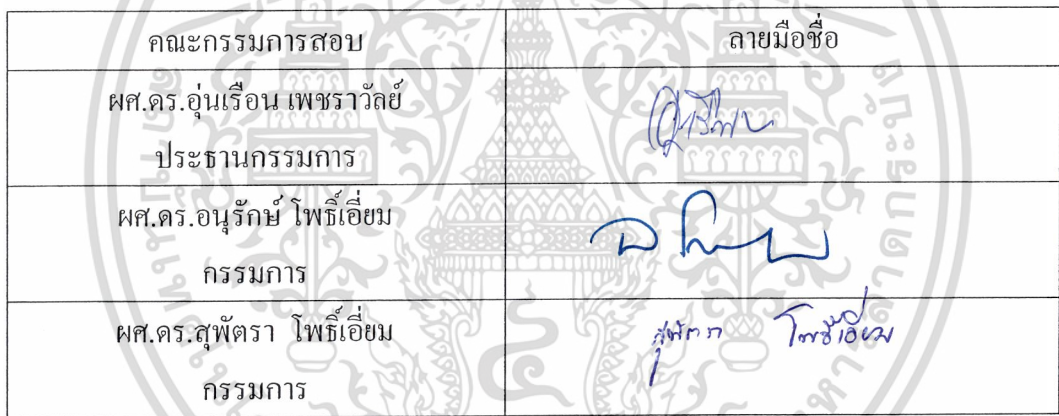 คณะกรรมการสอบ ลายมือชื่อ
ผศ.ดร.อุ่นเรือน เพชราวัลย์
ประธานกรรมการ
ผศ.ดร.อนุรักษ์ โพธิ์เอี่ยม
กรรมการ
ผศ.ดร.สุพัตรา โพธิ์เอี่ยม
สุพัตรา โพธิ์เอี่ยม
กรรมการ